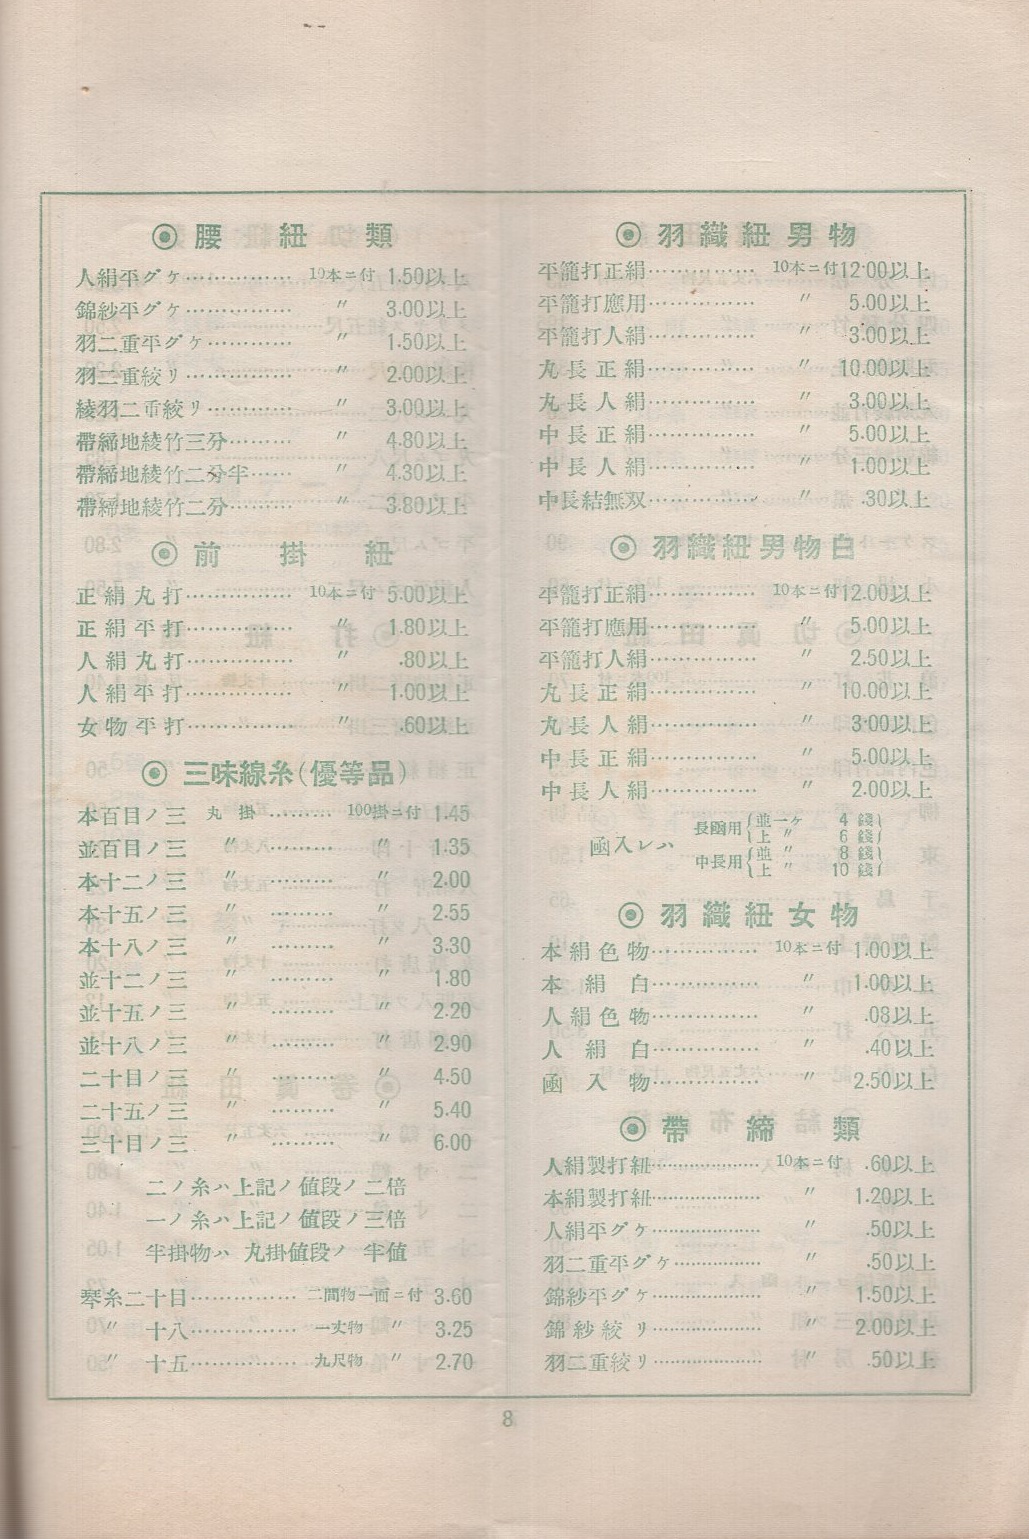 ◉腰紐類
人絹平グケ…………… 10本ニ付 1.50以上
錦紗平グケ…………… 〃 3.00以上
羽二重平グケ………… 〃 1.50以上
羽二重絞リ…………… 〃 2.00以上
綾羽二重絞リ………… 〃 3.00以上
帶締地綾竹三分……… 〃 4.80以上
帶締地綾竹二分半…… 〃 4.30以上
帶締地綾竹二分……… 〃 3.80以上
◉前掛紐
正絹丸打…………… 10本ニ付 5.00以上
正絹平打…………… 〃 1.80以上
人絹丸打…………… 〃 .80以上
人絹平打…………… 〃 1.00以上
女物平打…………… 〃 .60以上
◉三味線糸(優等品)
本百目ノ三 丸掛 ……… 100掛ニ付 1.45
並百目ノ三 〃 ……… 〃 1.35
本十二ノ三 〃 ……… 〃 2.00
本十五ノ三 〃 ……… 〃 2.55
本十八ノ三 〃 ……… 〃 3.30
並十二ノ三 〃 ……… 〃 1.80
並十五ノ三 〃 ……… 〃 2.20
並十八ノ三 〃 ……… 〃 2.90
二十目ノ三 〃 ……… 〃 4.50
二十五ノ三 〃 ……… 〃 5.40
三十目ノ三 〃 ……… 〃 6.00
二ノ糸ハ上記ノ値段ノ二倍
一ノ糸ハ上記ノ値段ノ三倍
半掛物ハ 丸掛値段ノ 半値
琴糸二十目…………… 二間物一面ニ付 3.60
〃 十八…………… 一丈物 〃 3.25
〃 十五…………… 九尺物 〃 2.70
◉羽織紐男物
平籠打正絹…………… 10本ニ付 12.00以上
平籠打應用…………… 〃 5.00以上
平籠打人絹…………… 〃 3.00以上
丸長正絹…………… 〃 10.00以上
丸長人絹…………… 〃 3.00以上
中長正絹…………… 〃 5.00以上
中長人絹…………… 〃 1.00以上
中長結無双…………… 〃 .30以上
◉羽織紐男物白
平籠打正絹…………… 10本ニ付 12.00以上
平籠打應用…………… 〃 5.00以上
平籠打人絹…………… 〃 2.50以上
丸長正絹…………… 〃 10.00以上
丸長人絹…………… 〃 3.00以上
中長正絹…………… 〃 5.00以上
中長人絹…………… 〃 2.00以上
函入レハ
長函用 並一ケ 4錢
上 〃 6錢
中長用 並 〃 8錢
上 〃 10錢
◉羽織紐女物
本絹色物…………… 10本ニ付 1.00以上
本絹白…………… 〃 1.00以上
人絹色物…………… 〃 .08以上
人絹白…………… 〃 .40以上
函入物…………… 〃 2.50以上
◉帶締類
人絹製打紐…………… 10本ニ付 .60以上
本絹製打紐…………… 〃 1.20以上
人絹平グケ…………… 〃 .50以上
羽二重平グケ………… 〃 .50以上
錦紗平グケ…………… 〃 1.50以上
錦紗絞リ…………… 〃 2.00以上
羽二重絞リ…………… 〃 .50以上
8